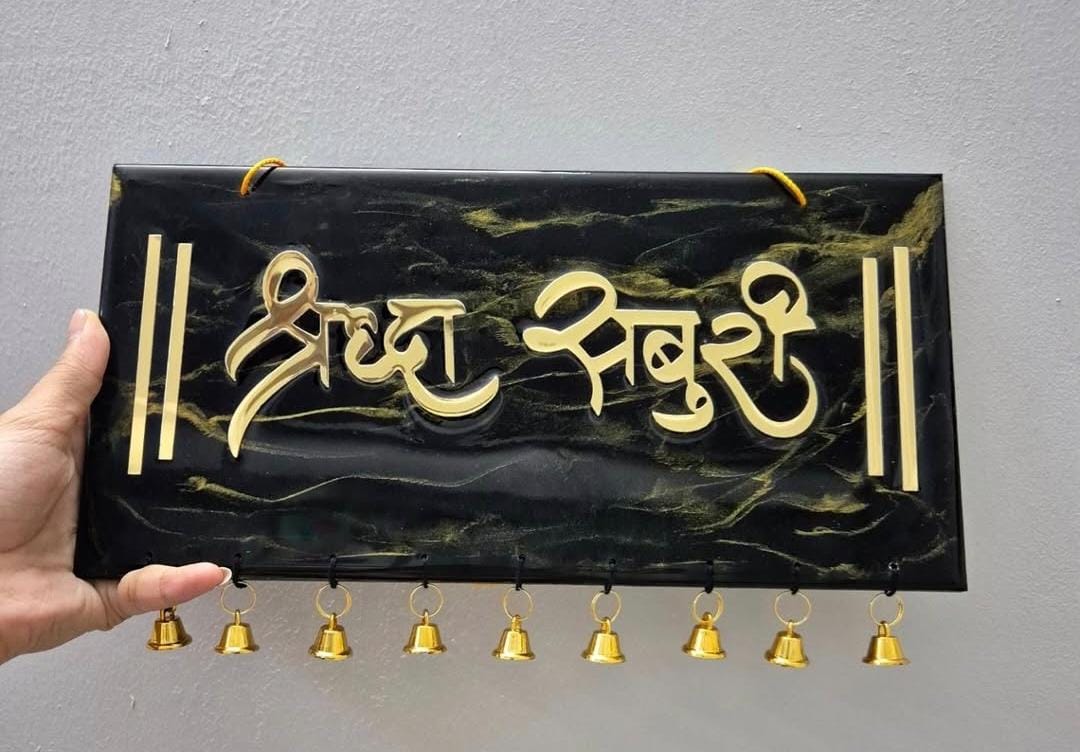 || श्रद्धा सबुरी ||